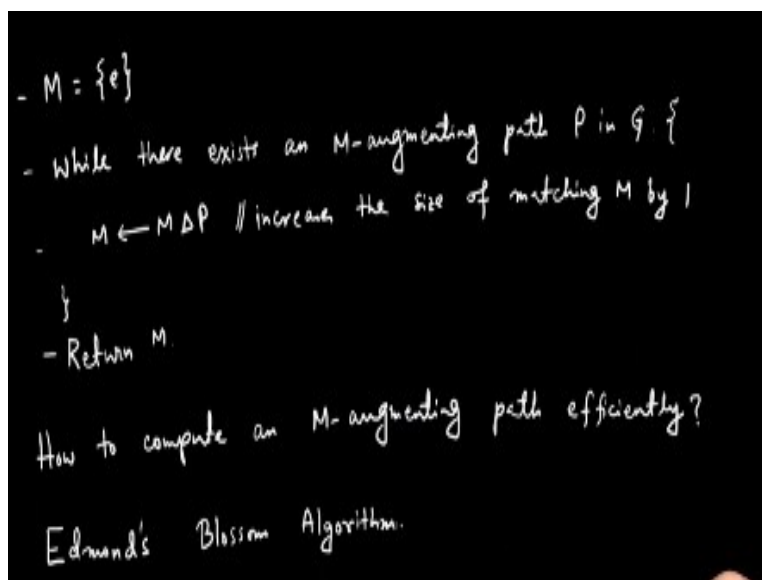 - M = {e}
- While there exists an M-augmenting path P in G {
- M ← M Δ P // increases the size of matching M by 1
}
- Return M.
How to compute an M-augmenting path efficiently?
Edmond's Blossom Algorithm.